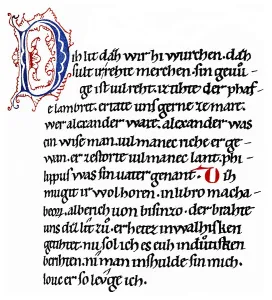 Diz lit daz wir hi wurchen. daz
sult ir rehte merchen. sin gevů-
ge ist vil reht. iz tihte der phaf-
fe lambret. er tate uns gerne ze mare.
wer alexander ware. alexander was
ein wise man. vil manec riche er ge-
wan. er zestorte vil manec lant. phi-
lippus was sin vater genant. Diz
mugit ir wol horen. in libro macha-
beorum. alberich von bisinzo. der brahte
uns daz lit zů. er hetez in walhisken
getihtet. nu sol ich es euh in dutisken
berihten. niman inshulde sin mich.
loue er so levge ich.